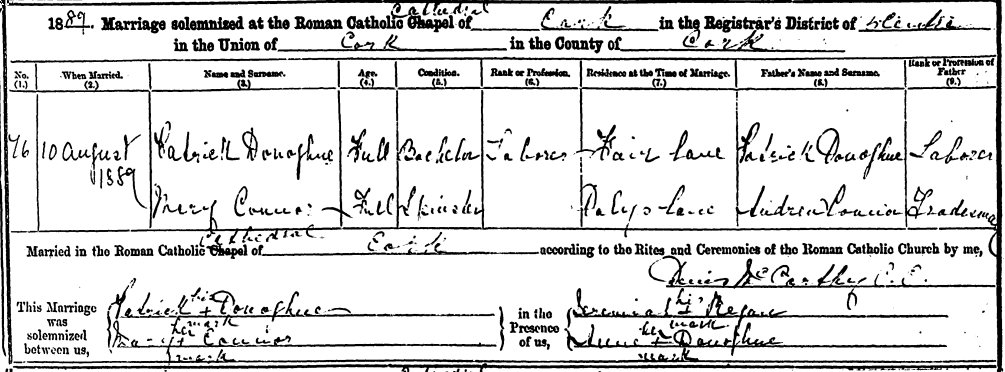 Cathedral
1889. Marriage solemnized at the Roman Catholic Chapel of Cork in the Registrar's District of
in the Union of Cork in the County of Cork
No. (1.) When Married. (2.) Name and Surname. (3.) Age. (4.) Condition. (5.) Rank or Profession. (6.) Residence at the Time of Marriage. (7.) Father's Name and Surname. (8.) Rank or Profession of Father (9.)
76 10 August 1889 Patrick Donoghue Full Bachelor Laborer Fair Lane Patrick Donoghue Laborer
Mary Connor Full Spinster Dalys Lane Andrew Connor Tradesman
Cathedral
Married in the Roman Catholic Chapel of Cork according to the Rites and Ceremonies of the Roman Catholic Church by me,
Denis McCarthy C.C.
This Marriage was solemnized between us,
Patrick + Donoghue
his mark
Mary + Connor
her mark
in the Presence of us,
Jeremiah + Regan
his mark
Anne + Donoghue
her mark